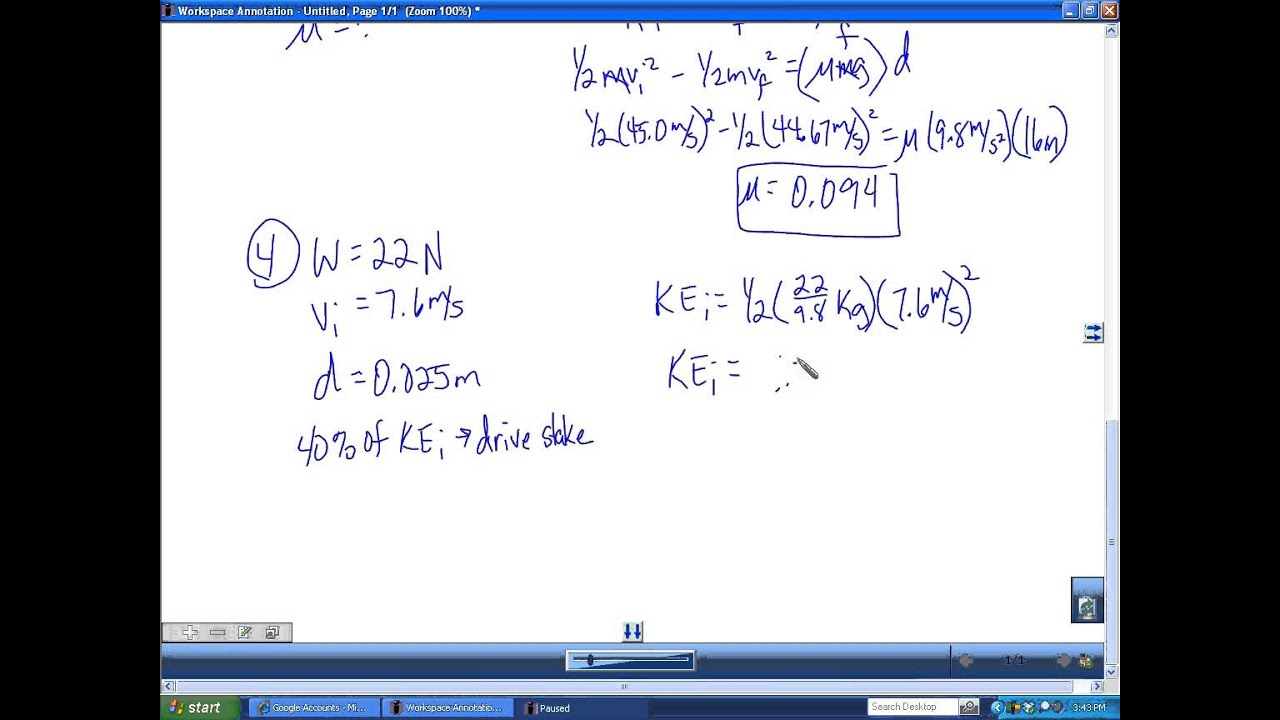 Workspace Annotation - Untitled, Page 1/1 (Zoom 100%) *
μ = ?
½mvᵢ² - ½mv_f² = (μmg)d
½(45.0m/s)² - ½(44.67m/s)² = μ(9.8m/s²)(16m)
μ = 0.094
4 W = 22N
vᵢ = 7.6m/s
d = 0.025m
40% of KEᵢ → drive stake
KEᵢ = ½(22/9.8 Kg)(7.6m/s)²
KEᵢ =
1/1
start
Google Accounts - Mi...
Workspace Annotatio...
Paused
Search Desktop
3:43 PM